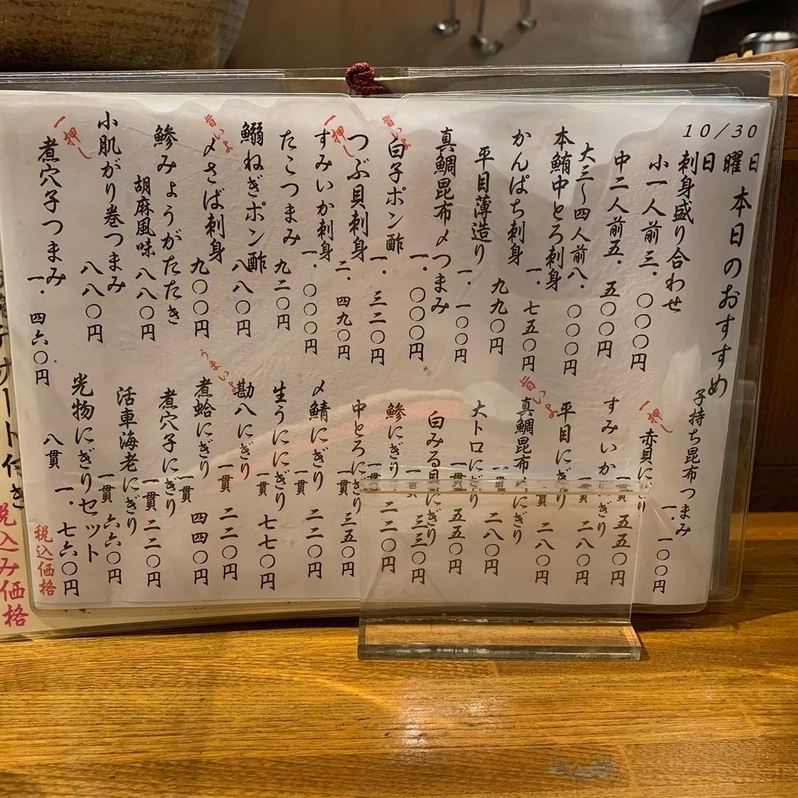 10/30
日曜日
本日のおすすめ
刺身盛り合わせ
小一人前三.〇〇〇円
中二人前五.五〇〇円
大三〜四人前八.〇〇〇円
本鮪中とろ刺身 一.七五〇円
かんぱち刺身 九九〇円
平目薄造り 一.一〇〇円
真鯛昆布〆つまみ 一.〇〇〇円
旨いよ
白子ポン酢 一.三二〇円
つぶ貝刺身 二.四九〇円
一押し
すみいか刺身 一.〇〇〇円
たこつまみ 九二〇円
鰯ねぎポン酢 八八〇円
旨いよ
〆さば刺身 九〇〇円
鯵みょうがたたき
胡麻風味 八八〇円
小肌がり巻つまみ 八八〇円
一押し
煮穴子つまみ 一.四六〇円
子持ち昆布つまみ 一.一〇〇円
一押し
赤貝にぎり 一貫 五五〇円
すみいかにぎり 一貫 二八〇円
平目にぎり 一貫 二八〇円
旨いよ
真鯛昆布〆にぎり 一貫 二八〇円
大トロにぎり 一貫 五五〇円
白みる貝にぎり 一貫 三三〇円
鯵にぎり 一貫 二二〇円
中とろにぎり 一貫 三五〇円
〆鯖にぎり 一貫 二二〇円
生うににぎり 一貫 七七〇円
勘八にぎり 一貫 二二〇円
うまいよ
煮蛤にぎり 一貫 四四〇円
煮穴子にぎり 一貫 二二〇円
活車海老にぎり 一貫 六六〇円
光物にぎりセット 八貫 一.七六〇円
税込価格
ート付き
税込み価格